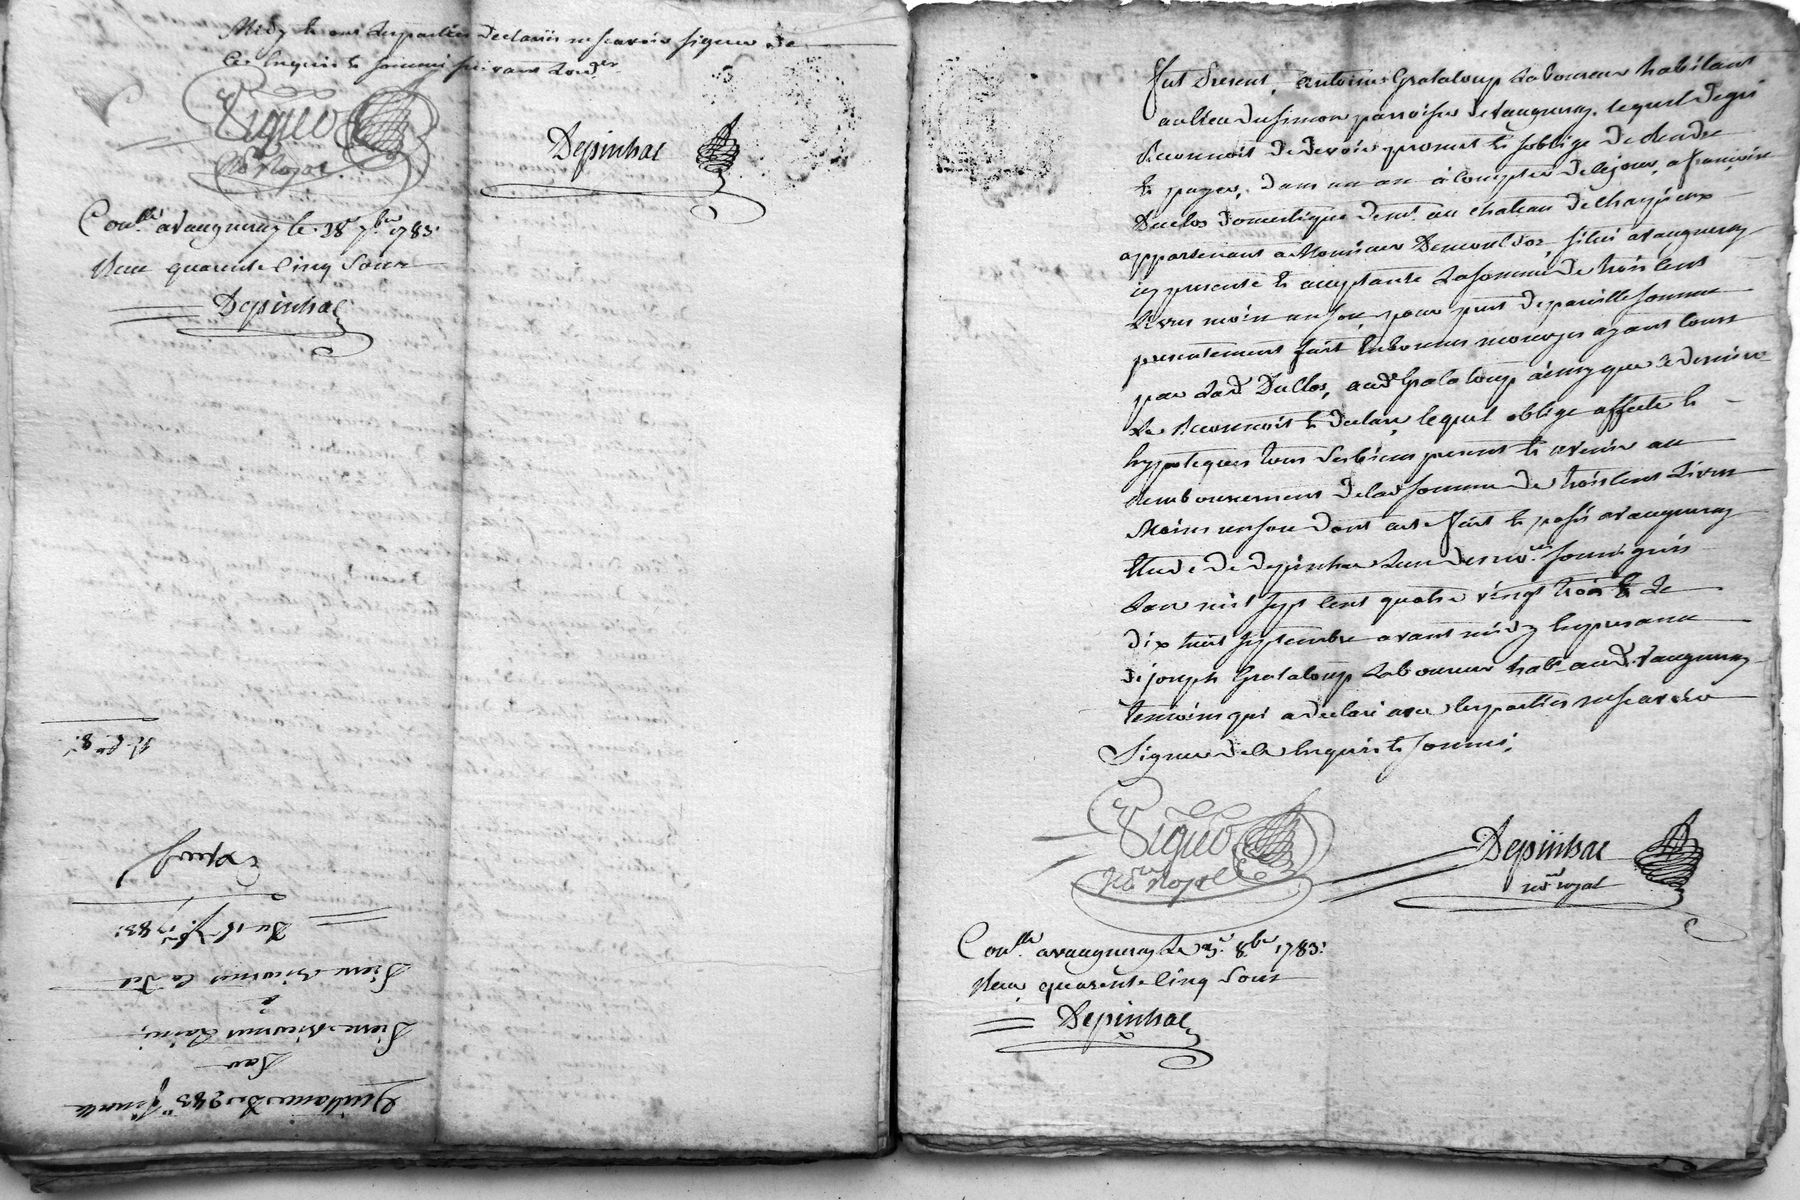 Midy les parties declarés ne scavoir signer de
ce enquis & sommé suivant l'ord.ce
Viguo
No.re Royal
Depinhac
Con.lle a Vaugneray le 28.e 7.bre 1783.
Reçu quarente cinq sous
Depinhac
Exped
Du 18 7.bre 1783.
Pierre Cadet
à
Pierre
Par
Quittance De 283.#
fut present, antoine Grataloup Laboureur habitant
au lieu du Simon parroisse de Vaugneray. lequel de gré
Reconnoit de devoir promet & s'oblige de rendre
& payer, dans un an à compter de ce jour, a françoise
Duclos domestique dem.t au chateau de
appartenant a Monsieur Demontdor situé a vaugneray
icy presente & acceptante La somme de trois cent
Livres moins un sou, pour pret de pareille somme
presentement fait en bonnes monoyes ayant cours
par Lad.e Duclos, aud. Grataloup ainsy que ce dernier
Le Reconnoit & declare, lequel oblige affecte &
hypoteque tous ses biens present & avenir au
remboursement de lad. somme de trois cent Livres
Moins un sou dont acte fait & passé a vaugneray
Etude de depinhac L'un des no.res soussignés
L'an mil sept cent quatre vingt trois & Le
dix huit septembre avant midy en presence
de joseph Grataloup Laboureur hab.t aud. Vaugneray
temoin qui a declaré avec les parties ne scavoir
Signer de ce enquis & sommé.
Viguo
No.re Royal
Depinhac
no.re royal
Con.lle a vaugneray Le 3.e 8.bre 1783.
Reçu quarente cinq sous
Depinhac